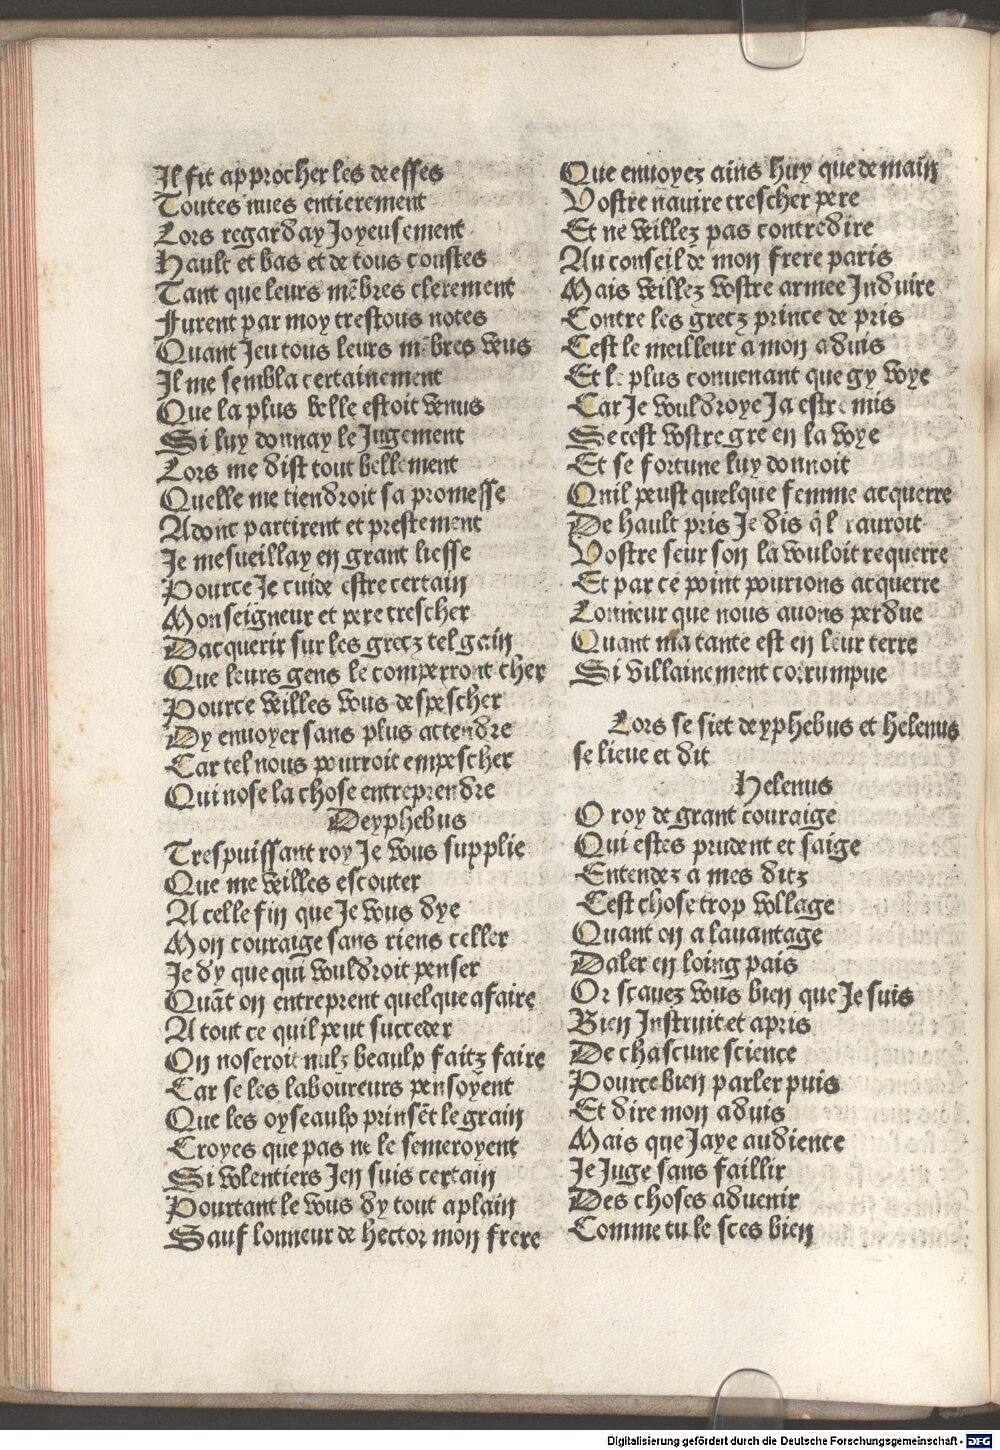 Il fit approcher les deesses
Toutes nues entierement
Lors regarday Joyeusement
Hault et bas et de tous coustes
Tant que leurs mēbres clerement
Furent par moy trestous notes
Quant Jeu tous leurs mēbres veus
Il me sembla certainement
Que la plus belle estoit venus
Si luy donnay le Jugement
Lors me dist tout bellement
Quelle me tiendroit sa promesse
Adonc partirent et prestement
Je mesueillay en grant liesse
Pource Je cuide estre certain
Monseigneur et pere trescher
Dacquerir sur les grecz tel gain
Que leurs gens le comperront cher
Pource veilles vous despescher
Dy enuoyer sans plus attendre
Car tel nous pourroit empescher
Qui nose la chose entreprendre
Deyphebus
Trespuissant roy Je vous supplie
Que me veilles escouter
A celle fin que Je vous dye
Mon couraige sans riens celler
Je dy que qui vouldroit penser
Quāt on entreprent quelque afaire
A tout ce quil peut succeder
On noseroit nulz beaulx faitz faire
Car se les laboureurs pensoyent
Que les oyseaulx prinsēt le grain
Croyes que pas ne le semeroyent
Si volentiers Jen suis certain
Pourtant le vous dy tout a plain
Sauf lonneur de hector mon frere
Que enuoyez ains huy que demain
Vostre nauire trescher pere
Et ne veillez pas contredire
Au conseil de mon frere paris
Mais veillez vostre armee Induire
Contre les grecz prince de pris
Cest le meilleur a mon aduis
Et le plus conuenant que gy voye
Car Je vouldroye Ja estre mis
Se cest vostre gre en la voye
Et se fortune luy donnoit
Quil peust quelque femme acquerre
De hault pris Je dis q̄l rauroit
Vostre seur son la vouloit requerre
Et par ce point pourions acquerre
Lonneur que nous auons perdue
Quant ma tante est en leur terre
Si villainement corrumpue
Lors se siet deyphebus et helenus
se lieue et dit
Helenus
O roy de grant couraige
Qui estes prudent et saige
Entendez a mes ditz
Cest chose trop vollage
Quant on a lauantage
Daler en loing pais
Or scauez vous bien que Je suis
Bien Instruit et apris
De chascune science
Pource bien parler puis
Et dire mon aduis
Mais que Jaye audience
Je Juge sans faillir
Des choses aduenir
Comme tu le sces bien
Digitalisierung gefördert durch die Deutsche Forschungsgemeinschaft - DFG